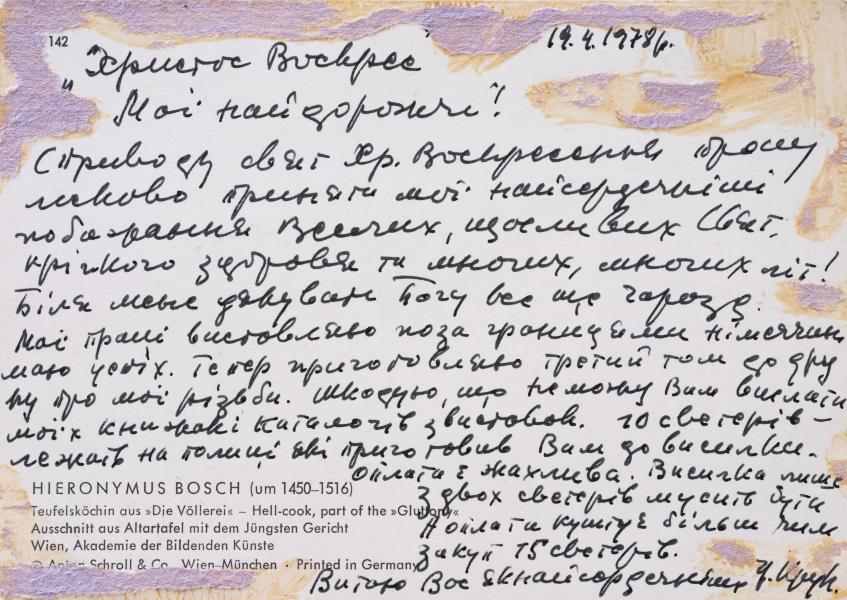 142
19.4.1978р.
"Христос Воскрес"
Мої найдорожчі!
Сприводу свят Хр. Воскресення прошу
ласкаво приняти мої найсердечніші
побажання Веселих, щасливих Свят,
кріпкого здоровля та многих, многих літ!
Біля мене дякувати Богу все ще гаразд.
Мої праці виставляю поза границями Німеччини
маю успіх. Тепер приготовляю третий том до дру
ку про мої різьби. Шкодую, що не можу Вам вислати
моїх книжок і каталогів з виставок. 10 светерів –
лежать на полиці які приготовив Вам до висилки.
Оплата є жахлива. Висилка лише
з двох светерів мусить бути
А оплата куштує більш чим
закуп 15 светерів.
Витаю Вас якнайсердечніше
HIERONYMUS BOSCH (um 1450–1516)
Teufelsköchin aus »Die Völlerei« – Hell-cook, part of the »Gluttony«
Ausschnitt aus Altartafel mit dem Jüngsten Gericht
Wien, Akademie der Bildenden Künste
© Anton Schroll & Co., Wien–München · Printed in Germany